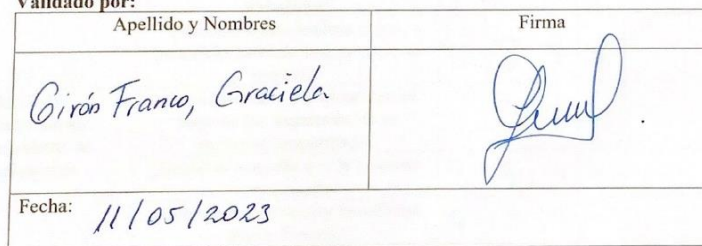 Validado por:
Apellido y Nombres
Firma
Girón Franco, Graciela
Fecha: 11/05/2023